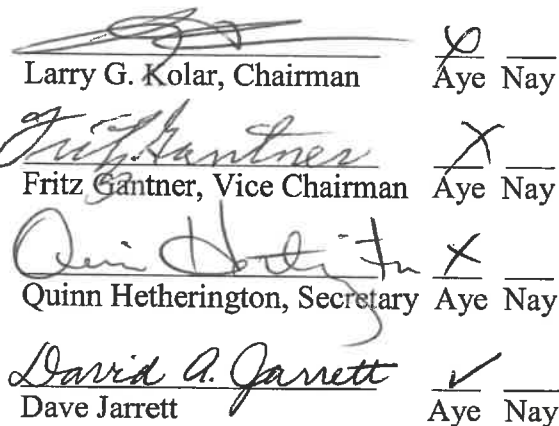 Larry G. Kolar, Chairman Aye Nay
Fritz Gantner X
Fritz Gantner, Vice Chairman Aye Nay
X
Quinn Hetherington, Secretary Aye Nay
David A. Jarrett ✓
Dave Jarrett Aye Nay